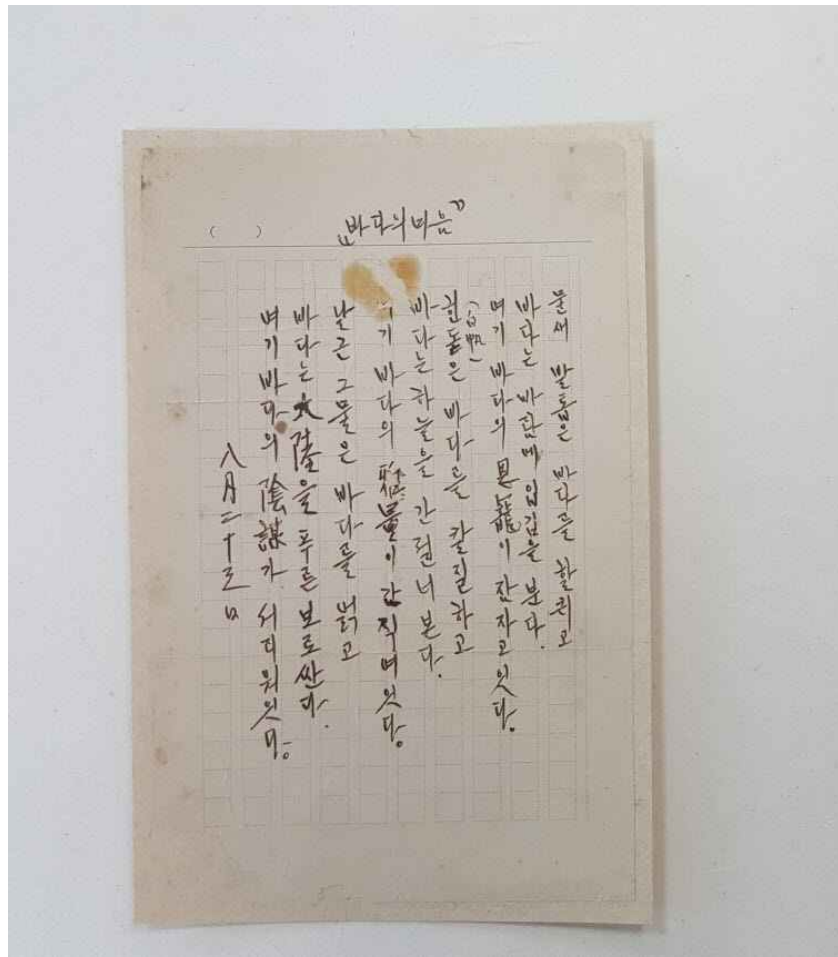 ( )
“바다의 마음”
물새 발톱은 바다를 할퀴고
바다는 바람에 입김을 분다.
여기 바다의 恩寵이 잠자고잇다。
힌돛(白帆)은 바다를 칼질하고
바다는 하늘을 간질너본다.
기 바다의 雅量이 간직여잇다。
낡은 그물은 바다를 얽고
바다는 大陸을 푸른 보로싼다.
여기 바다의 陰謀가 서리워잇다。
八月二十三日